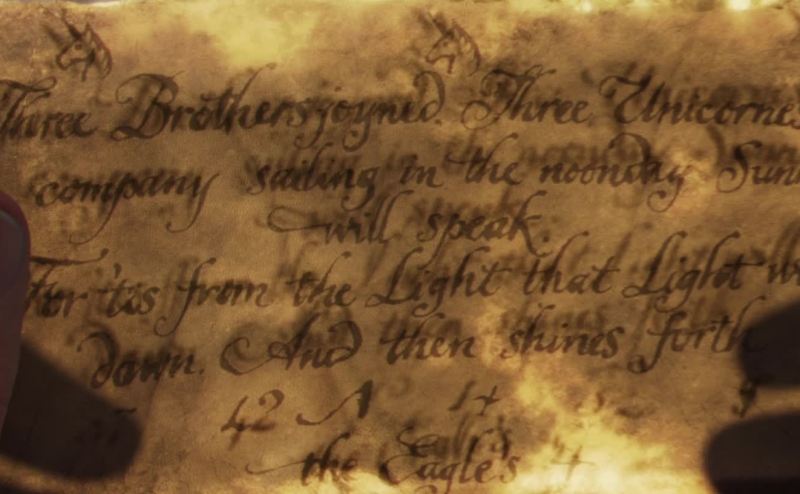 Three Brothers joyned. Three Unicornes
company sailing in the noonday Sunn
will speak.
For 'tis from the Light that Light w
dawn. And then shines forth
42
the Eagle's +